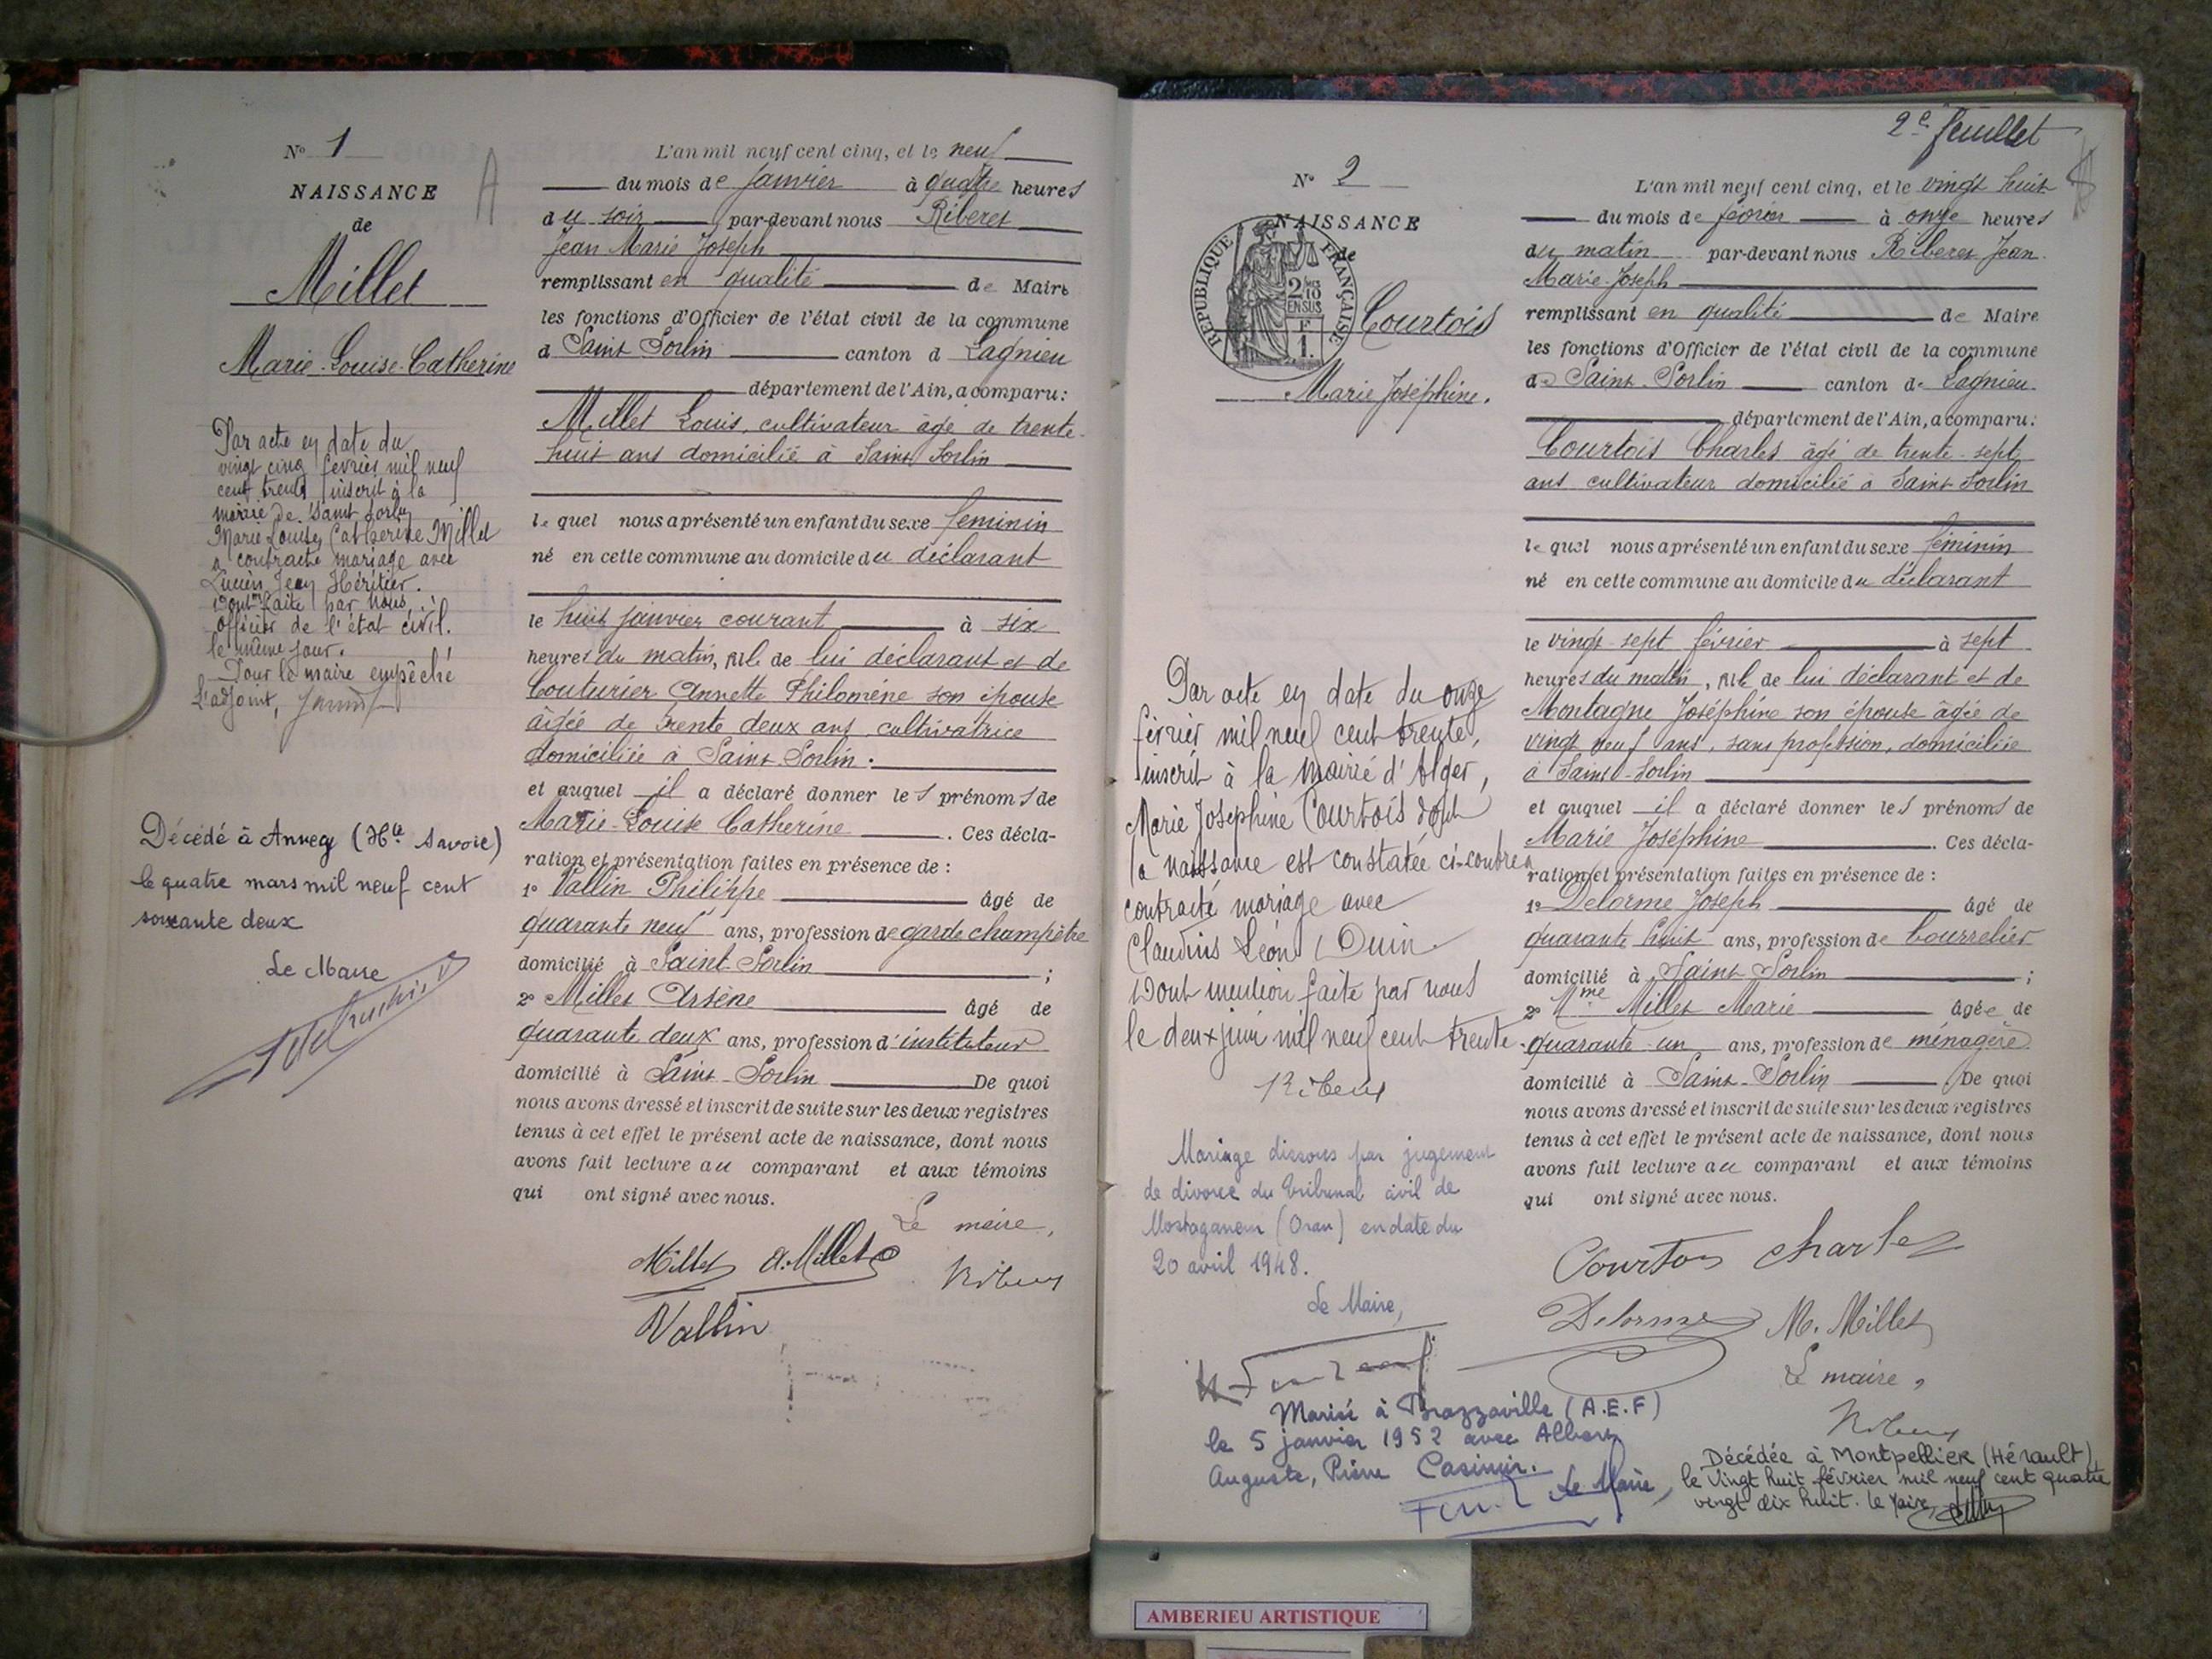 N° 1
NAISSANCE
de
Millet
Marie-Louise-Catherine
Par acte en date du
vingt cinq février mil neuf
cent trente inscrit à la
mairie de Saint Sorlin
Marie Louise Catherine Millet
a contracté mariage avec
Lucien Jean Héritier.
Dont mon faite par nous
officier de l'état civil.
le même jour.
Pour le maire empêché
L'adjoint,
Décédé à Annecy (Hte Savoie)
le quatre mars mil neuf cent
soixante deux
Le Maire
A
L'an mil neuf cent cinq, et le neuf
du mois de janvier à quatre heures
du soir par-devant nous Riberet
Jean Marie Joseph
remplissant en qualité de Maire
les fonctions d'Officier de l'état civil de la commune
d Saint Sorlin canton d Lagnieu
département de l'Ain, a comparu:
Millet Louis, cultivateur âgé de trente-
huit ans domicilié à Saint Sorlin
lequel nous a présenté un enfant du sexe féminin
né en cette commune au domicile du déclarant
le huit janvier courant à six
heures du matin, né de lui déclarant et de
Couturier Annette Philomène son épouse
âgée de trente deux ans, cultivatrice
domiciliée à Saint-Sorlin.
et auquel il a déclaré donner les prénoms de
Marie-Louise Catherine . Ces décla-
ration et présentation faites en présence de :
1° Vallin Philippe âgé de
quarante neuf ans, profession de garde champêtre
domicilié à Saint-Sorlin ;
2° Millet Arsène âgé de
quarante deux ans, profession d'instituteur
domicilié à Saint-Sorlin De quoi
nous avons dressé et inscrit de suite sur les deux registres
tenus à cet effet le présent acte de naissance, dont nous
avons fait lecture au comparant et aux témoins
qui ont signé avec nous.
Le maire,
Millet A. Millet Riberet
Vallin
2e feuillet
N° 2
NAISSANCE
de
REPUBLIQUE FRANÇAISE
2/10
EN SUS
1 F.
Courtois
Marie Joséphine.
Par acte en date du onze
février mil neuf cent trente,
inscrit à la mairie d'Alger,
Marie Joséphine Courtois dont
la naissance est constatée ci-contre a
contracté mariage avec
Claudius Léon Duin
Dont mention faite par nous
le deux juin mil neuf cent trente.
Riberet
Mariage dissous par jugement
de divorce du tribunal civil de
Mostaganem (Oran) en date du
20 avril 1948.
Le Maire,
Marié à Brazzaville (A.E.F)
le 5 janvier 1952 avec Albert
Auguste, Pierre Casimir.
Le Maire,
L'an mil neuf cent cinq, et le vingt huit
du mois de février à onze heures
du matin par-devant nous Riberet Jean
Marie-Joseph
remplissant en qualité de Maire
les fonctions d'Officier de l'état civil de la commune
de Saint-Sorlin canton de Lagnieu
département de l'Ain, a comparu:
Courtois Charles âgé de trente-sept
ans cultivateur domicilié à Saint Sorlin
lequel nous a présenté un enfant du sexe féminin
né en cette commune au domicile du déclarant
le vingt-sept février à sept
heures du matin, né de lui déclarant et de
Montagne Joséphine son épouse âgée de
vingt neuf ans, sans profession, domiciliée
à Saint-Sorlin
et auquel il a déclaré donner les prénoms de
Marie Joséphine . Ces décla-
ration et présentation faites en présence de :
1° Delorme Joseph âgé de
quarante huit ans, profession de bourrelier
domicilié à Saint Sorlin ;
2° Mme Millet Marie âgée de
quarante-un ans, profession de ménagère
domicilié à Saint-Sorlin De quoi
nous avons dressé et inscrit de suite sur les deux registres
tenus à cet effet le présent acte de naissance, dont nous
avons fait lecture au comparant et aux témoins
qui ont signé avec nous.
Courtois Charles
Delorme M. Millet
Le maire,
Riberet
Décédée à Montpellier (Hérault)
le vingt huit février mil neuf cent quatre
vingt dix huit. Le Maire,
AMBERIEU ARTISTIQUE